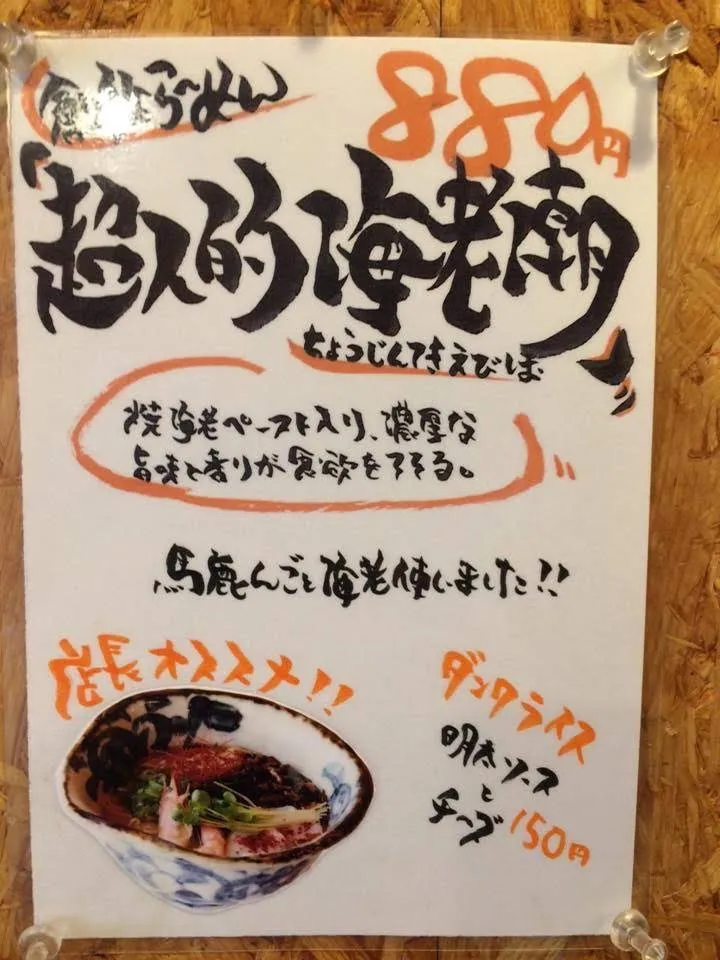 創作らーめん
880円
「超人的海老潮」
ちょうじんてきえびしお
焼海老ペースト入り、濃厚な
旨味と香りが食欲をそそる。
馬鹿んごと海老使いました!!
店長オススメ!!
ダンクライス
明太ソース
と
チーズ 150円